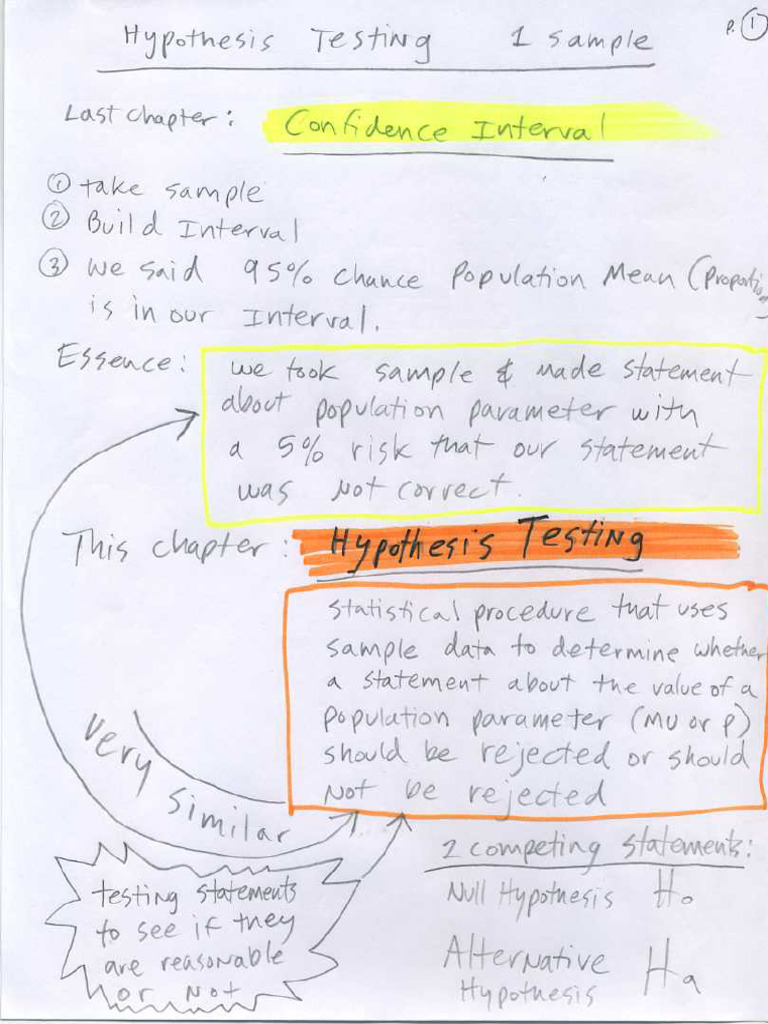 Hypothesis Testing 1 sample
P. 1
Last chapter: Confidence Interval
① take sample
② Build Interval
③ we said 95% chance Population Mean (Proportion)
is in our Interval.
Essence: we took sample & made statement
about population parameter with
a 5% risk that our statement
was not correct.
This chapter: Hypothesis Testing
Statistical procedure that uses
sample data to determine whether
a statement about the value of a
population parameter (mu or p)
should be rejected or should
Not be rejected
Very Similar
testing statements
to see if they
are reasonable
or Not
2 competing statements:
Null Hypothesis Ho
Alternative
Hypothesis Ha